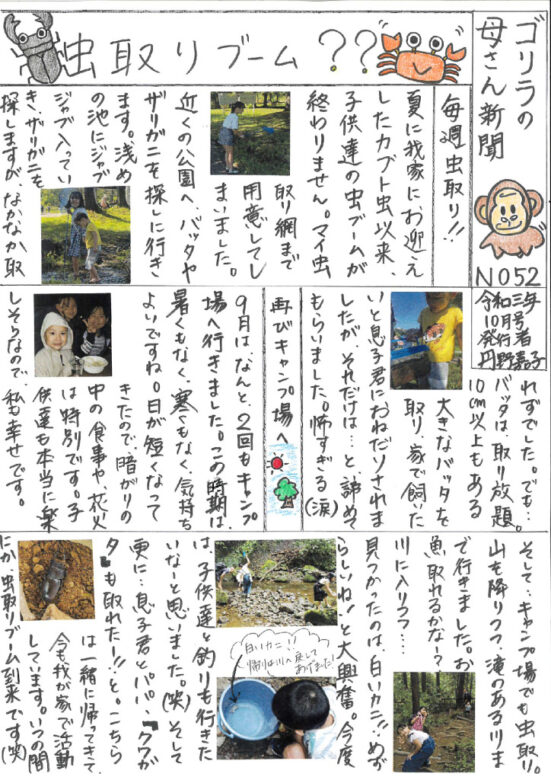 虫取りブーム??
ゴリラの
母さん新聞
NO52
令和三年
10月号
発行者
丹野嘉子
毎週虫取り!!
夏に我家にお迎え
したカブト虫以来、
子供達の虫ブームが
終わりません。マイ虫
取り網まで
用意してし
まいました。
近くの公園へ、バッタや
ザリガニを探しに行き
ます。浅め
の池にジャブ
ジャブ入ってい
き、ザリガニを
探しますが、なかなか取
れずでした。でも…。
バッタは、取り放題。
10cm以上もある
大きなバッタを
取り、家で飼いた
いと息子君におねだりされま
したが、それだけは…と、諦めて
もらいました。怖すぎる(涙)
再びキャンプ場へ
9月は、なんと、2回もキャンプ
場へ行きました。この時期は、
暑くもなく、寒くもなく、気持ち
よいですね。日が短くなって
きたので、暗がりの
中の食事や、花火
は特別です。子
供達も本当に楽
しそうなので、私も幸せです。
そして、キャンプ場でも虫取り。
山を降りつつ、滝のある川ま
で行きました。お
魚取れるかな?と
川に入りつつ…
見つかったのは白いカニ!!めず
らしいね!と大興奮。今度
は、子供達と釣りも行きた
いなーと思いました。(笑)そして
更に…息子君とパパ、クワガ
タも取れたー!!と。こちら
は一緒に帰ってきて、
今も我が家で活動
しています。いつの間
にか虫取りブーム到来です(笑)
白いカニ!!
帰りは川へ戻して
あげました!